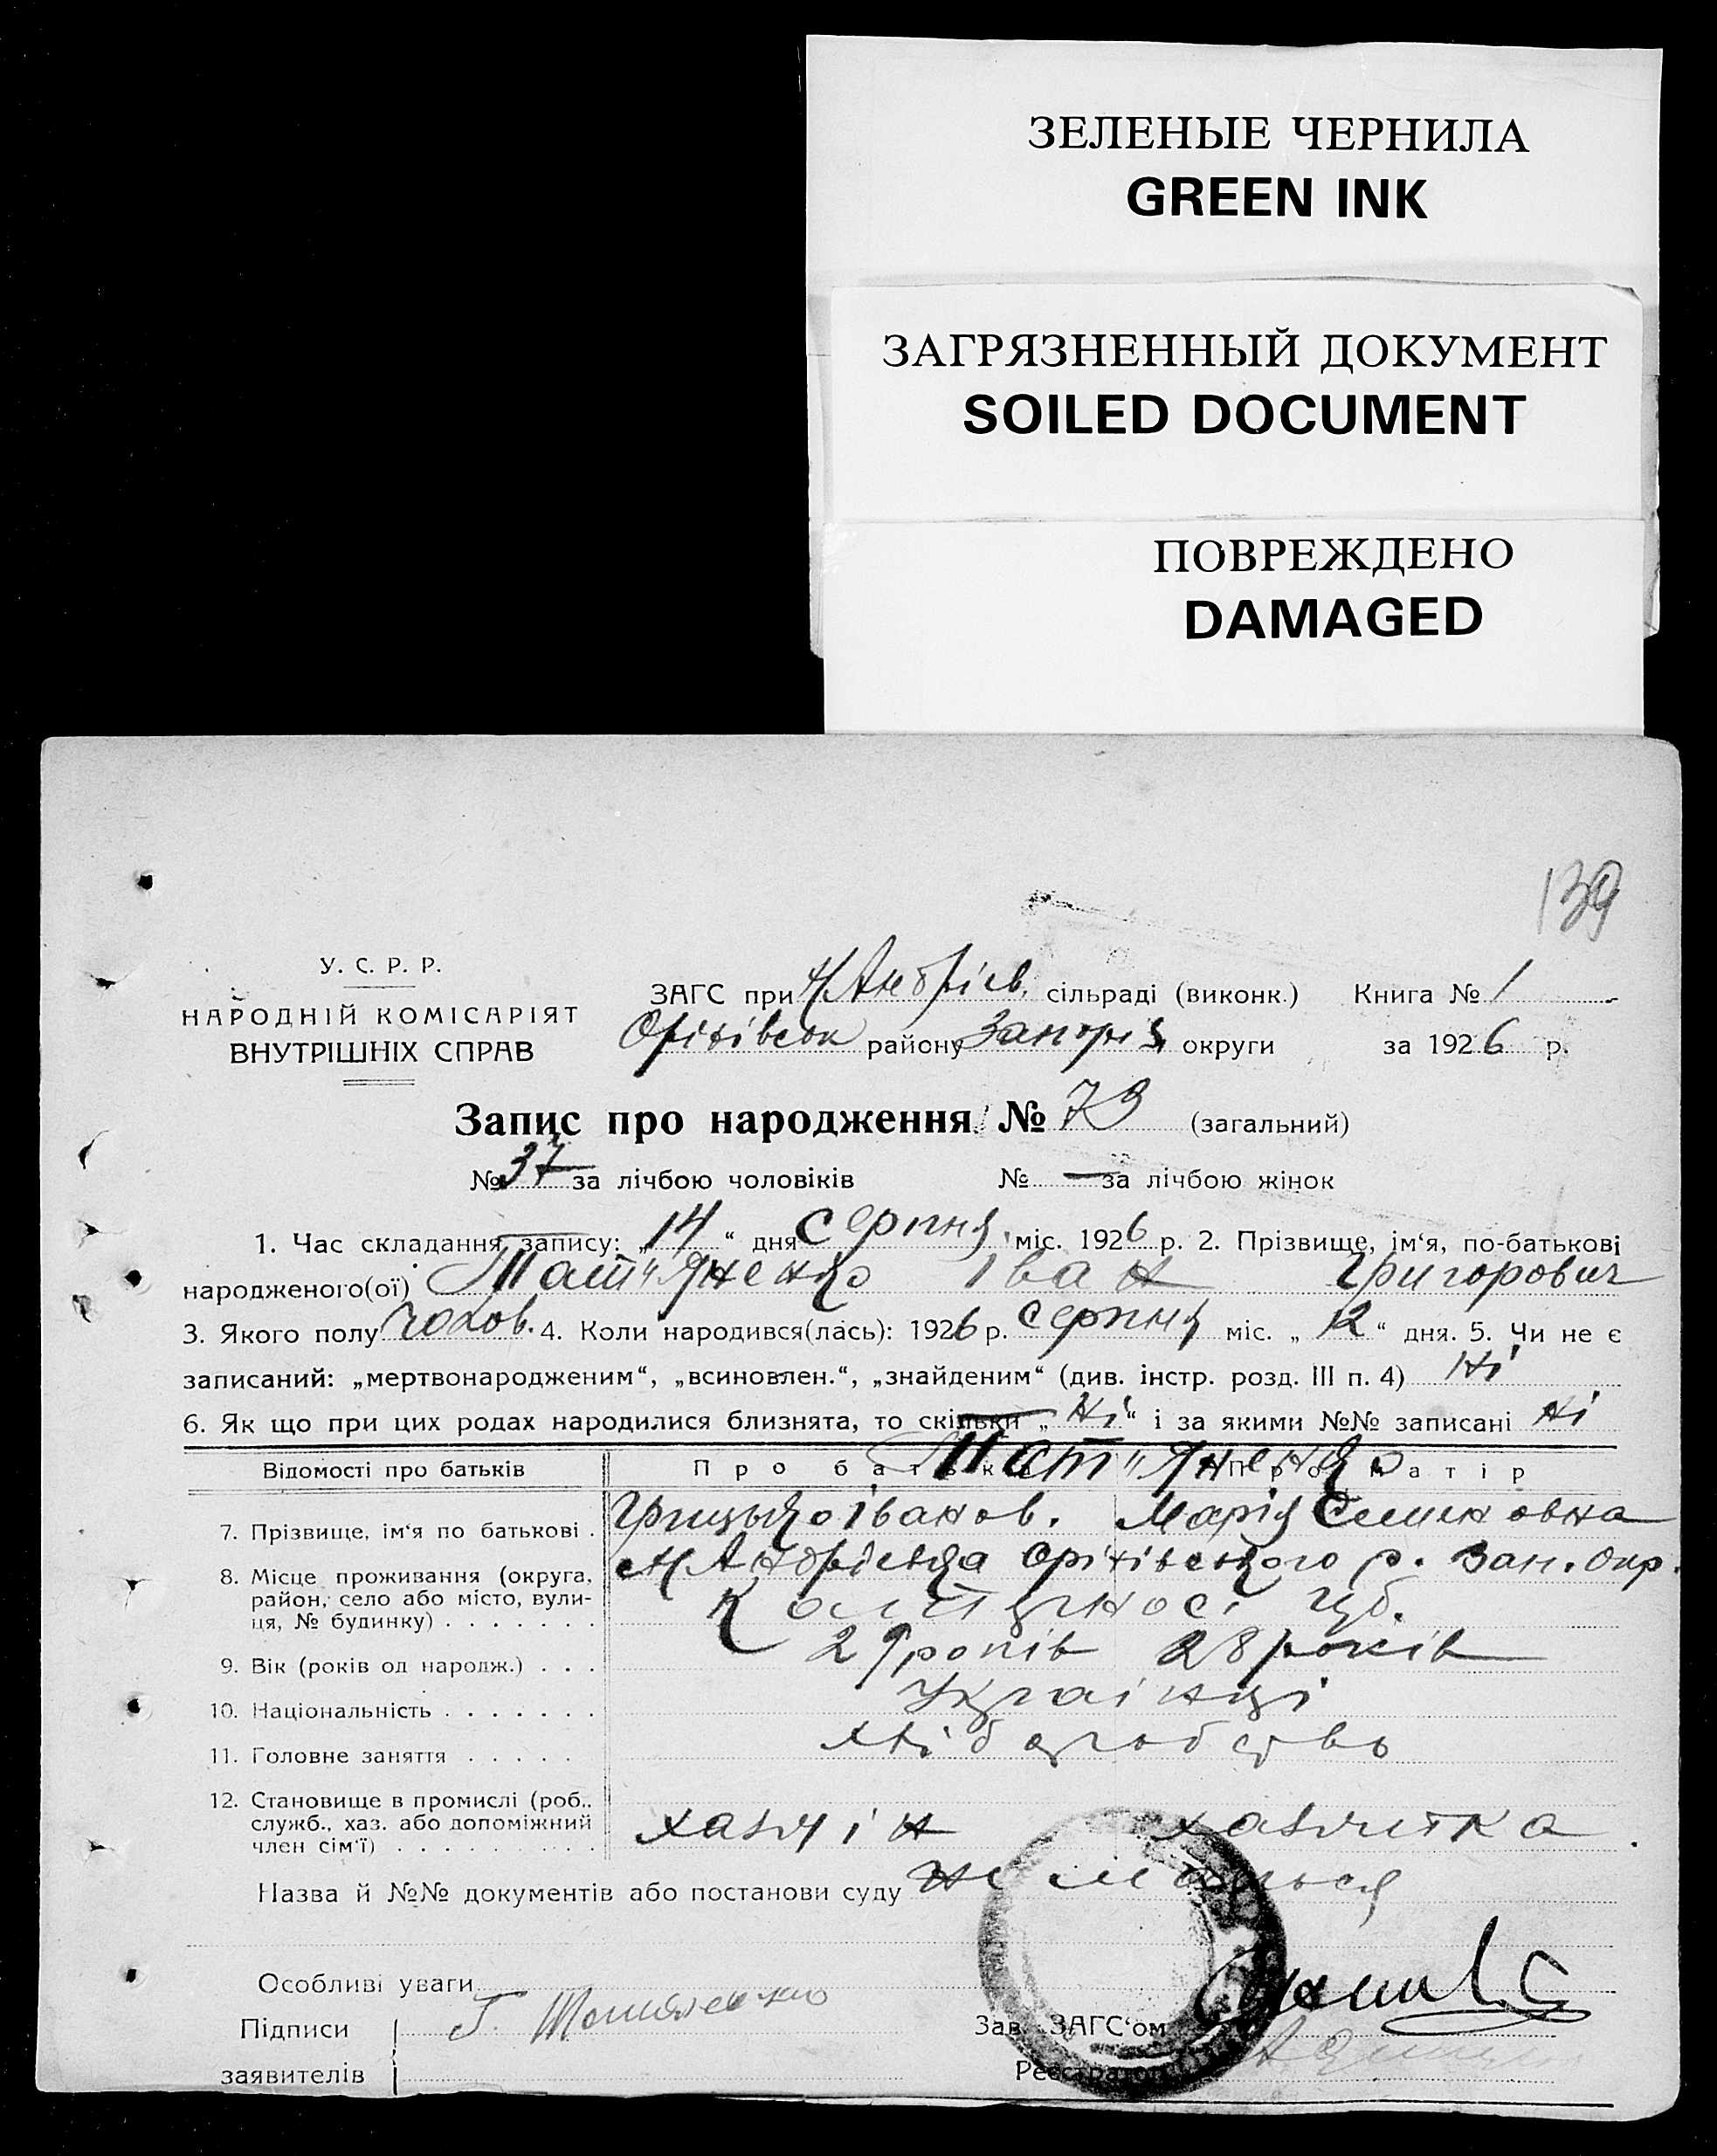 ЗЕЛЕНЫЕ ЧЕРНИЛА
GREEN INK
ЗАГРЯЗНЕННЫЙ ДОКУМЕНТ
SOILED DOCUMENT
ПОВРЕЖДЕНО
DAMAGED
139
У. С. Р. Р.
НАРОДНІЙ КОМІСАРІЯТ
ВНУТРІШНІХ СПРАВ
ЗАГС при Н/Андріев. сільраді (виконк.) Книга № 1
Оріхівськ району Запоріз. округи за 1926 р.
Запис про народження № 73 (загальний)
№ 37 за лічбою чоловіків № — за лічбою жінок
1. Час складання запису: „14“ дня серпня міс. 1926 р. 2. Прізвище, ім'я, по-батькові
народженого(ої) Тат'яненко Іван Григорович
3. Якого полу чолов. 4. Коли народився(лась): 1926 р. серпня міс. „12“ дня. 5. Чи не є
записаний: „мертвонародженим“, „всиновлен.“, „знайденим“ (див. інстр. розд. III п. 4) Ні
6. Як що при цих родах народилися близнята, то скільки „Ні“ і за якими №№ записані Ні
Відомості про батьків Про батька Про матір
Тат'яненко
7. Прізвище, ім'я по батькові . Грицько Іванов. Марія Семеновна
8. Місце проживання (округа, район, село або місто, вулиця, № будинку) . . . . . . . Н/Андрієвка Оріхівського р. Зап. Окр.
9. Вік (років од народж.) . . . 29 років 28 років
10. Національність . . . . . . . Українці
11. Головне заняття . . . . . хліборобство
12. Становище в промислі (роб., служб., хаз. або допоміжний член сім'ї) . . . . . . . . . хазяін хазяйка.
Назва й №№ документів або постанови суду не мається
Особливі уваги
Підписи Г. Татяненко Зав. ЗАГС'ом
заявителів Реєстратор